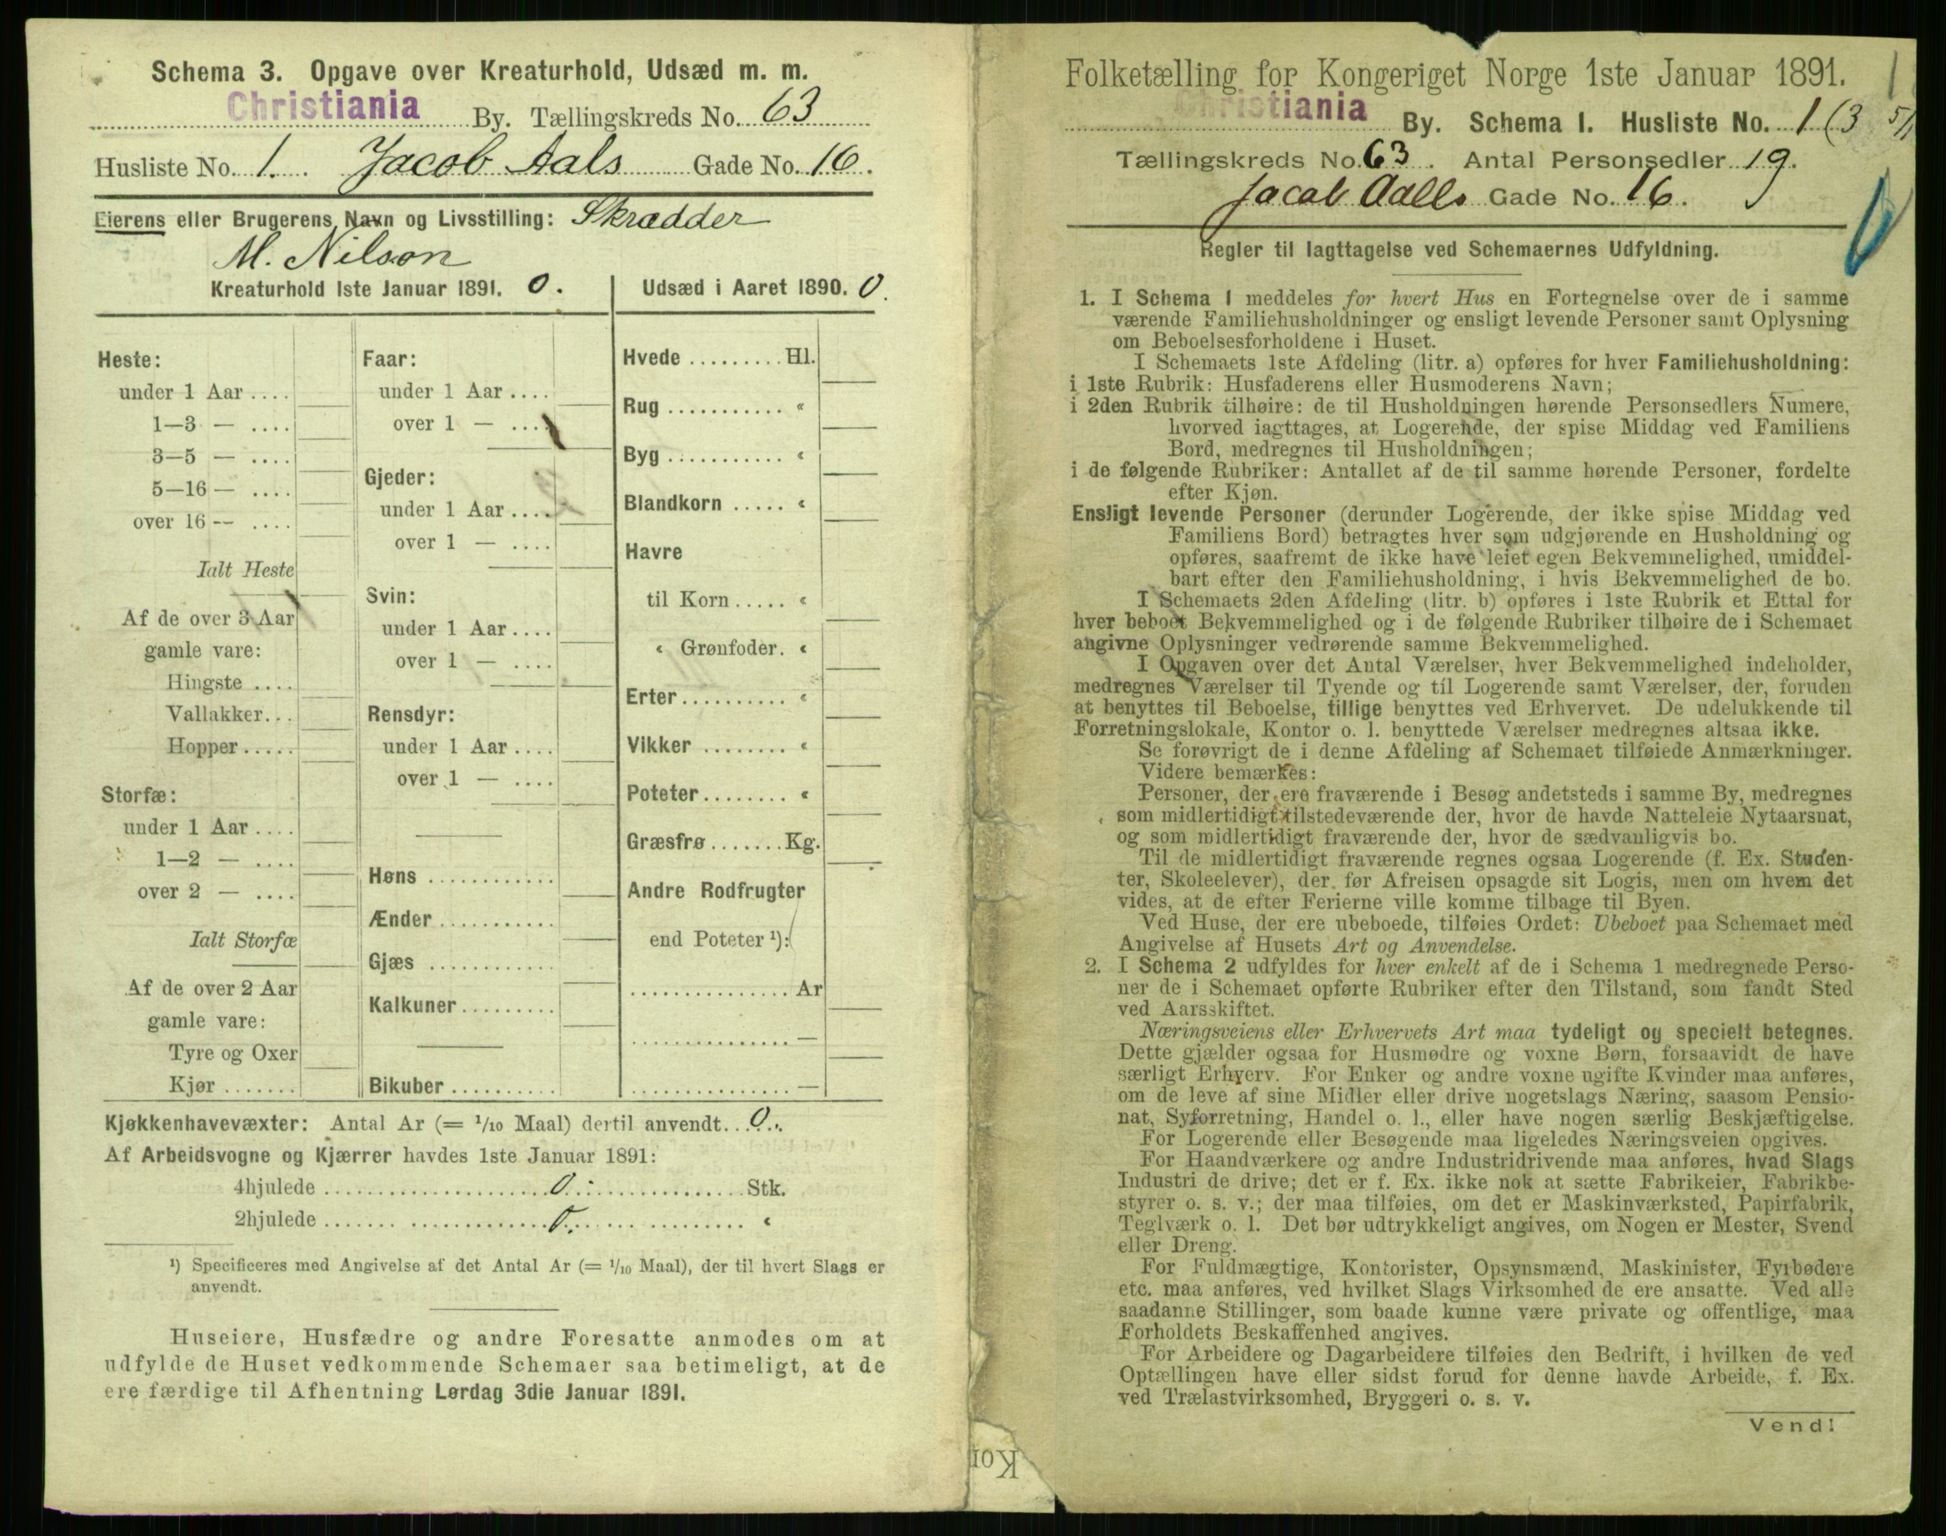 Schema 3. Opgave over Kreaturhold, Udsæd m. m.
Christiania By. Tællingskreds No. 63
Husliste No. 1. Jacob Aals Gade No. 16.
Eierens eller Brugerens Navn og Livsstilling: Skrædder
M. Nilson
Kreaturhold 1ste Januar 1891. 0.
Heste:
under 1 Aar ....
1—3 — ....
3—5 — ....
5—16 — ....
over 16 — ....
Ialt Heste
Af de over 3 Aar
gamle vare:
Hingste ....
Vallakker...
Hopper .....
Storfæ:
under 1 Aar ....
1—2 — ....
over 2 — ....
Ialt Storfæ
Af de over 2 Aar
gamle vare:
Tyre og Oxer
Kjør .......
Faar:
under 1 Aar ....
over 1 — ....
Gjeder:
under 1 Aar ....
over 1 — ....
Svin:
under 1 Aar ....
over 1 — ....
Rensdyr:
under 1 Aar ....
over 1 — ....
Høns ............
Ænder ...........
Gjæs ............
Kalkuner .........
Bikuber ..........
Udsæd i Aaret 1890. 0.
Hvede ......... Hl.
Rug ........... «
Byg ........... «
Blandkorn ..... «
Havre
til Korn ..... «
« Grønfoder. «
Erter .......... «
Vikker ........ «
Poteter ........ «
Græsfrø ....... Kg.
Andre Rodfrugter
end Poteter ¹):
............... Ar
............... —
............... —
Kjøkkenhavevæxter: Antal Ar (= 1/10 Maal) dertil anvendt. 0.
Af Arbeidsvogne og Kjærrer havdes 1ste Januar 1891:
4hjulede .......... 0. .......... Stk.
2hjulede .......... 0. .......... «
¹) Specificeres med Angivelse af det Antal Ar (= 1/10 Maal), der til hvert Slags er
anvendt.
Huseiere, Husfædre og andre Foresatte anmodes om at
udfylde de Huset vedkommende Schemaer saa betimeligt, at de
ere færdige til Afhentning Lørdag 3die Januar 1891.
Folketælling for Kongeriget Norge 1ste Januar 1891.
Christiania By. Schema 1. Husliste No. 1 (3
Tællingskreds No. 63. Antal Personsedler 19.
Jacob Aalls Gade No. 16.
Regler til Iagttagelse ved Schemaernes Udfyldning.
1. I Schema 1 meddeles for hvert Hus en Fortegnelse over de i samme
værende Familiehusholdninger og ensligt levende Personer samt Oplysning
om Beboelsesforholdene i Huset.
I Schemaets 1ste Afdeling (litr. a) opføres for hver Familiehusholdning:
i 1ste Rubrik: Husfaderens eller Husmoderens Navn;
i 2den Rubrik tilhøire: de til Husholdningen hørende Personsedlers Numere,
hvorved iagttages, at Logerende, der spise Middag ved Familiens
Bord, medregnes til Husholdningen;
i de følgende Rubriker: Antallet af de til samme hørende Personer, fordelte
efter Kjøn.
Ensligt levende Personer (derunder Logerende, der ikke spise Middag ved
Familiens Bord) betragtes hver som udgjørende en Husholdning og
opføres, saafremt de ikke have leiet egen Bekvemmelighed, umiddel-
bart efter den Familiehusholdning, i hvis Bekvemmelighed de bo.
I Schemaets 2den Afdeling (litr. b) opføres i 1ste Rubrik et Ettal for
hver beboet Bekvemmelighed og i de følgende Rubriker tilhøire de i Schemaet
angivne Oplysninger vedrørende samme Bekvemmelighed.
I Opgaven over det Antal Værelser, hver Bekvemmelighed indeholder,
medregnes Værelser til Tyende og til Logerende samt Værelser, der, foruden
at benyttes til Beboelse, tillige benyttes ved Erhvervet. De udelukkende til
Forretningslokale, Kontor o. l. benyttede Værelser medregnes altsaa ikke.
Se forøvrigt de i denne Afdeling af Schemaet tilføiede Anmærkninger.
Videre bemærkes:
Personer, der ere fraværende i Besøg andetsteds i samme By, medregnes
som midlertidigt tilstedeværende der, hvor de havde Natteleie Nytaarsnat,
og som midlertidigt fraværende der, hvor de sædvanligvis bo.
Til de midlertidigt fraværende regnes ogsaa Logerende (f. Ex. Studen-
ter, Skoleelever), der før Afreisen opsagde sit Logis, men om hvem det
vides, at de efter Ferierne ville komme tilbage til Byen.
Ved Huse, der ere ubeboede, tilføies Ordet: Ubeboet paa Schemaet med
Angivelse af Husets Art og Anvendelse.
2. I Schema 2 udfyldes for hver enkelt af de i Schema 1 medregnede Perso-
ner de i Schemaet opførte Rubriker efter den Tilstand, som fandt Sted
ved Aarsskiftet.
Næringsveiens eller Erhvervets Art maa tydeligt og specielt betegnes.
Dette gjælder ogsaa for Husmødre og voxne Børn, forsaavidt de have
særligt Erhverv. For Enker og andre voxne ugifte Kvinder maa anføres,
om de leve af sine Midler eller drive nogetslags Næring, saasom Pensio-
nat, Syforretning, Handel o. l., eller have nogen særlig Beskjæftigelse.
For Logerende eller Besøgende maa ligeledes Næringsveien opgives.
For Haandværkere og andre Industridrivende maa anføres, hvad Slags
Industri de drive; det er f. Ex. ikke nok at sætte Fabrikeier, Fabrikbe-
styrer o. s. v.; der maa tilføies, om det er Maskinværksted, Papirfabrik,
Teglværk o. l. Det bør udtrykkeligt angives, om Nogen er Mester, Svend
eller Dreng.
For Fuldmægtige, Kontorister, Opsynsmænd, Maskinister, Fyrbødere
etc. maa anføres, ved hvilket Slags Virksomhed de ere ansatte. Ved alle
saadanne Stillinger, som baade kunne være private og offentlige, maa
Forholdets Beskaffenhed angives.
For Arbeidere og Dagarbeidere tilføies den Bedrift, i hvilken de ved
Optællingen have eller sidst forud for denne havde Arbeide, f. Ex.
ved Trælastvirksomhed, Bryggeri o. s. v.
Vend!